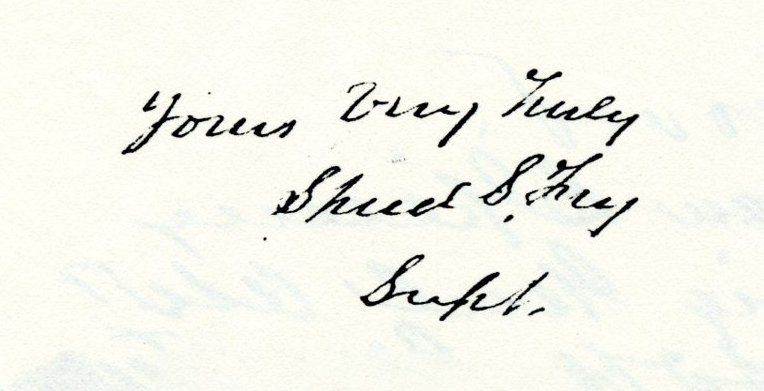 Yours Very Truly
Speed S. Fry
Supt.